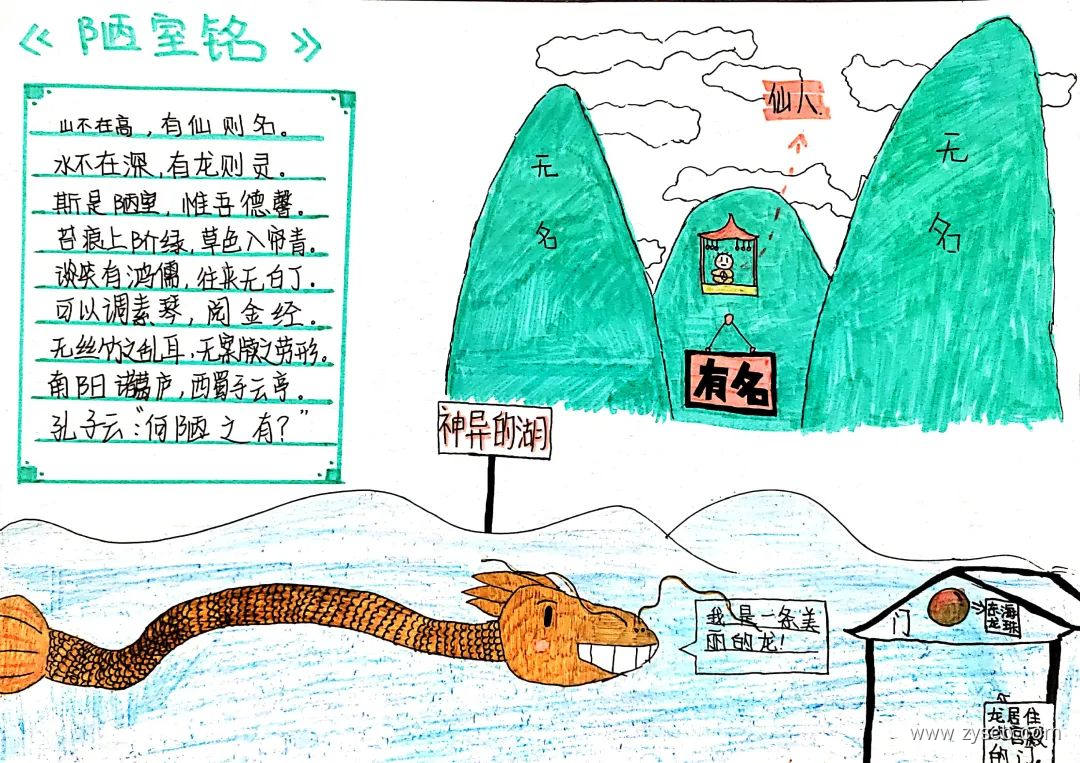 《陋室铭》
山不在高，有仙则名。
水不在深，有龙则灵。
斯是陋室，惟吾德馨。
苔痕上阶绿，草色入帘青。
谈笑有鸿儒，往来无白丁。
可以调素琴，阅金经。
无丝竹之乱耳，无案牍之劳形。
南阳诸葛庐，西蜀子云亭。
孔子云：“何陋之有？”
仙人
无名
无名
有名
神异的湖
我是一条美
丽的龙！
门
龙珠
龙居住
的宫殿
的门。